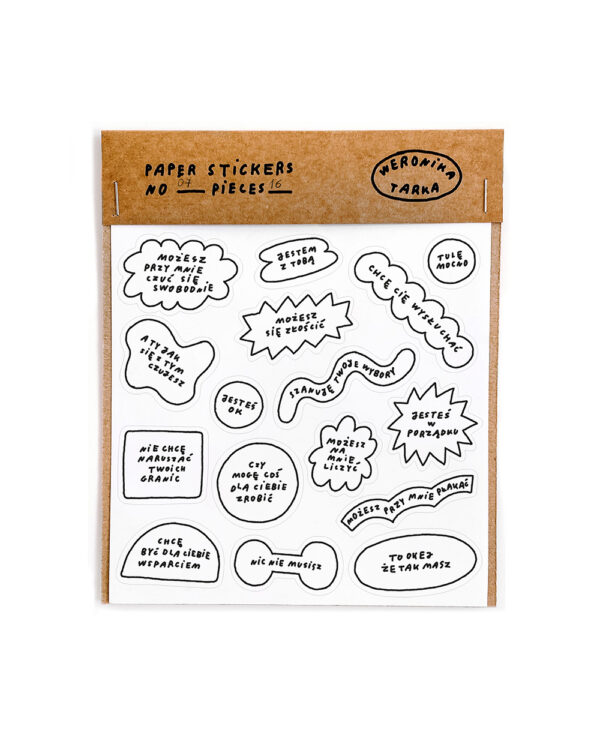 PAPER STICKERS
NO 07 PIECES 16
WERONIKA
TARKA
MOŻESZ
PRZY MNIE
CZUĆ SIĘ
SWOBODNIE
JESTEM
Z TOBĄ
CHCĘ CIĘ WYSŁUCHAĆ
TULĘ
MOCNO
MOŻESZ
SIĘ ZŁOŚCIĆ
A TY JAK
SIĘ Z TYM
CZUJESZ
JESTEŚ
OK
SZANUJĘ TWOJE WYBORY
JESTEŚ
W
PORZĄDKU
NIE CHCĘ
NARUSZAĆ
TWOICH
GRANIC
CZY
MOGĘ COŚ
DLA CIEBIE
ZROBIĆ
MOŻESZ
NA
MNIE
LICZYĆ
MOŻESZ PRZY MNIE PŁAKAĆ
CHCĘ
BYĆ DLA CIEBIE
WSPARCIEM
NIC NIE MUSISZ
TO OKEJ
ŻE TAK MASZ